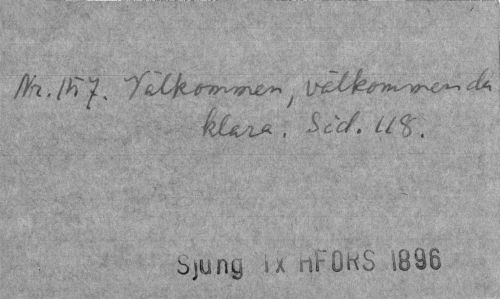 Nr. 157. Välkommen, välkommen da
klara. Sid. 118.
Sjung 1x HFORS 1896